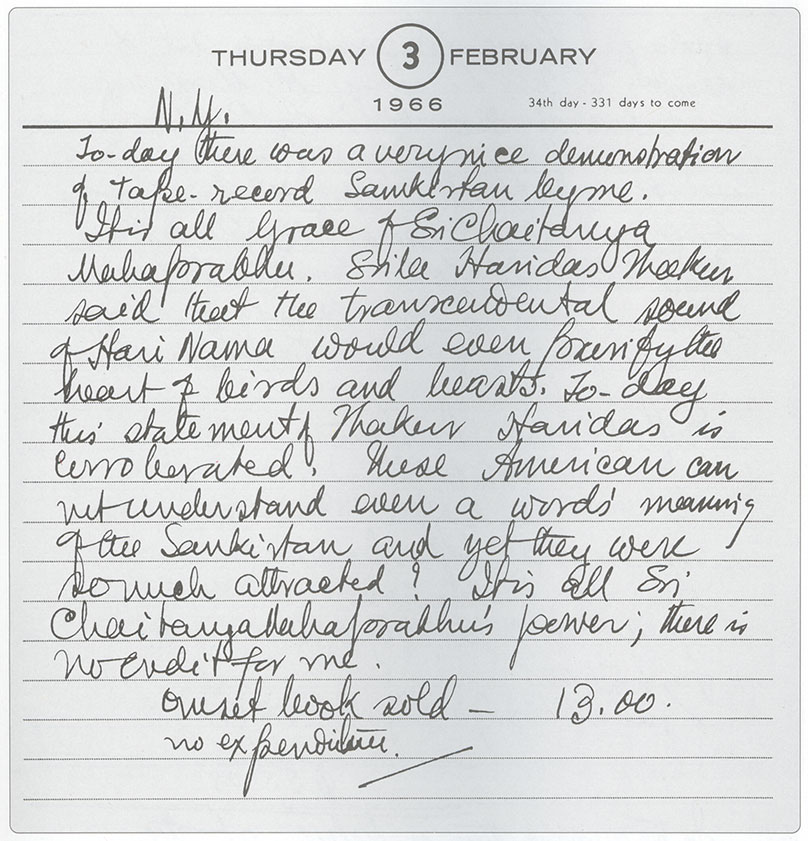 THURSDAY 3 FEBRUARY
1966 34th day - 331 days to come
N.Y.
To-day there was a very nice demonstration
of Tape-record Samkirtan by me.
It is all Grace of Sri Chaitanya
Mahaprabhu. Srila Haridas Thakur
said that the transcendental sound
of Hari Nama would even purify the
heart of birds and beasts. To-day
this statement of Thakur Haridas is
corroberated. These American can
not understand even a words' meaning
of the Sankirtan and yet they were
so much attracted! It is all Sri
Chaitanya Mahaprabhu's power; there is
no credit for me.
one set book sold — 13.00.
no expenditure.